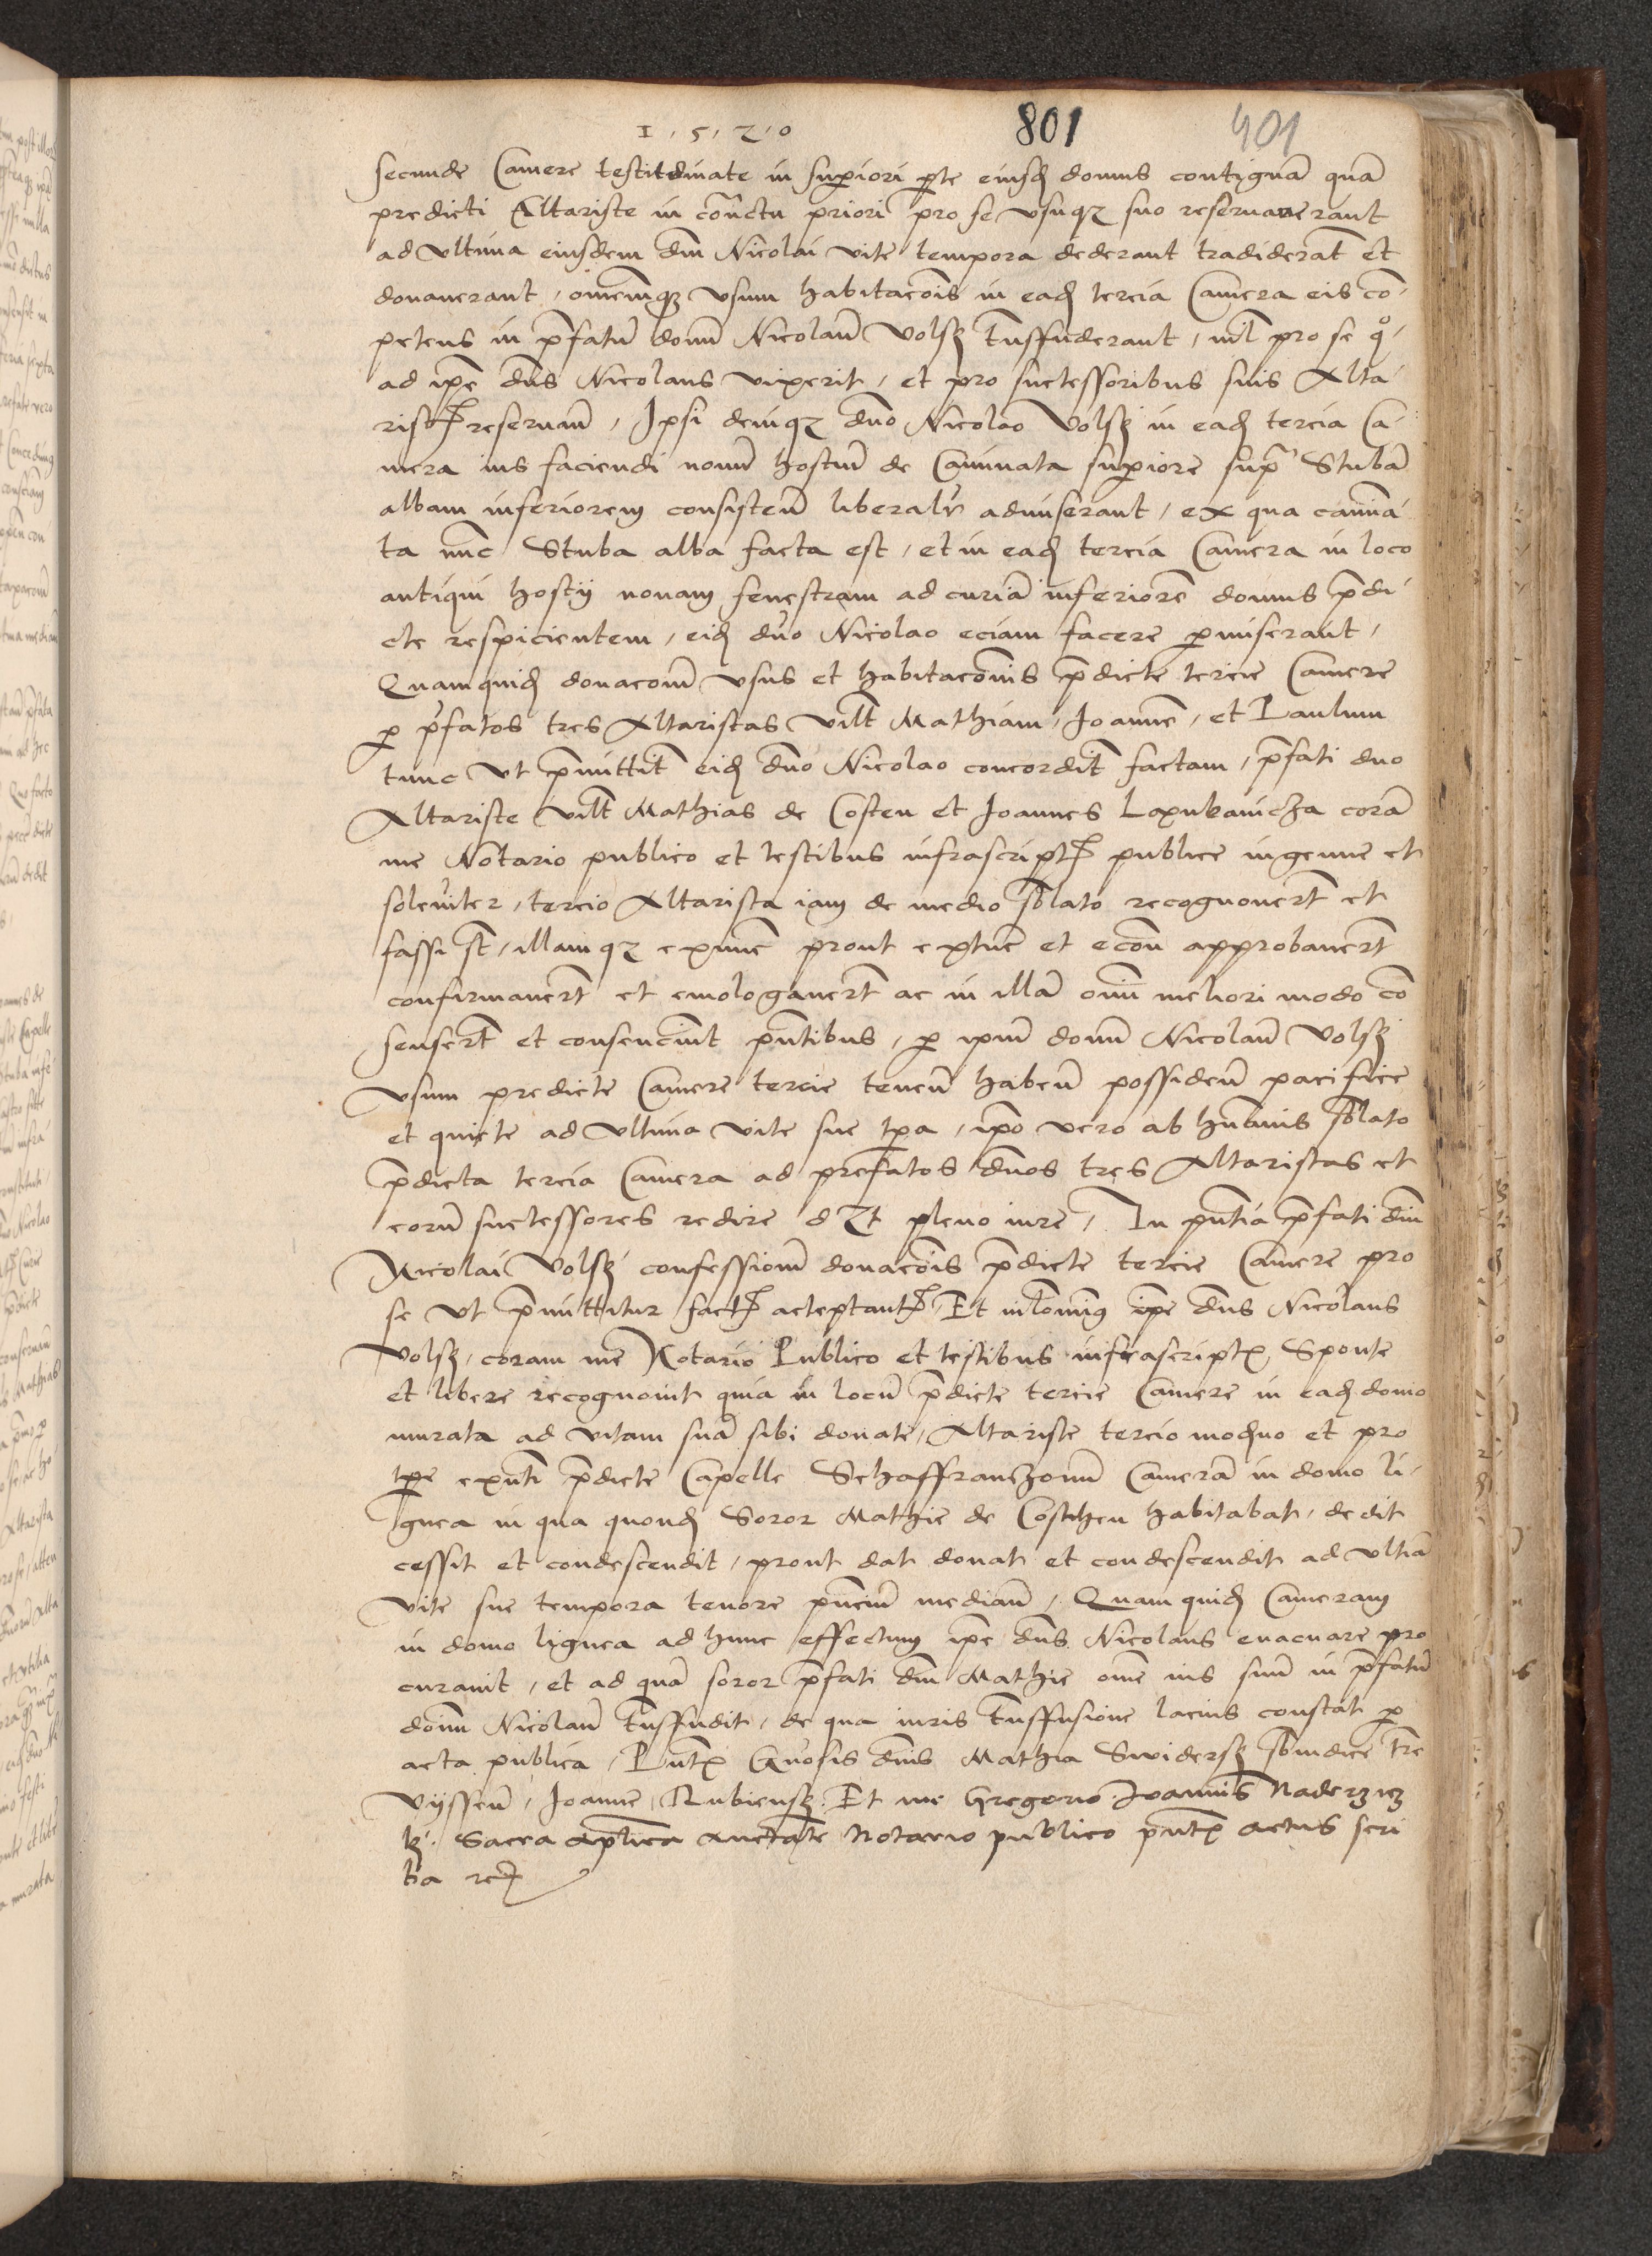 1 · 5 · 2 · 0
801
401
secunde Camere testitdinate in superiori pte eiusd domus contiguā quā
predicti Altariste in cōnctu priori pro se vsuqz suo reseruauerant
ad vltima eiusdem dm̄ Nicolai vite tempora dederant tradiderāt et
donauerant, omnemqz vsum habitacōis in ead tercia Camera eis co-
petens in p̄fatū donū Nicolaū Volsz t̄nsfuderant, nil pro se q°-
ad ip̄e dn̄s Nicolaus vixerit, et pro suctessoribus suis Alta-
rist reseruan̄, Ipsi deniqz dn̄o Nicolao Volsz in ead tercia Ca-
mera ius faciendi nouū hostiū de Caminata superiore supra Stubā
albam inferiorem consisten̄ liberalr admiserant, ex qua camina-
ta nūc Stuba alba facta est, et in ead tercia Camera in loco
antiqui hostij nouam fenestram ad curiā inferiorē domus p̄di-
cte respicientem, eid dn̄o Nicolao eciam facere p̄miserant,
Quamquid donacōm vsus et habitacōnis p̄dicte tercie Camere
p p̄fatos tres Altaristas vilt Mathiam, Joannē, et Paulum
tunc vt p̄mittit eid dn̄o Nicolao concordit̄ factam, p̄fati duo
Altariste vilt Mathias de Costen et Joannes Lapubanicza corā
me Notario publico et testibus infrascript publice ingenue et
soleniter, tercio Altarista iam de medio sblato recognouert̄ et
fassi st̄, illamqz exnūc prout extūc et econ̄ approbauert̄
confirmauert̄ et emologauert̄ ac in illā om̄i meliori modo co
sensert̄ et consenciūt pn̄tibus, p ipm̄ donū Nicolaū Volsz
vsum predicte Camere tercie tenen̄ haben̄ possiden̄ pacifice
et quiete ad vltima vite sue tpa, ip̄o vero ab humanis sblato
p̄dicta tercia Camera ad prefatos dn̄os tres Altaristas et
eorū suctessores redire dZt pleno iure, In pn̄tia p̄fati dn̄i
Nicolai Volsz confessionū donacōis p̄dicte tercie Camere pro
se vt p̄mittitur fact acteptant, Et nilomīg ip̄e dn̄s Nicolaus
Volsz, coram me Notario Publico et testibus infrascriptx Sponte
et libere recognouit quia in locū p̄dicte tercie Camere in ead domo
murata ad vitam suā sibi donate, Altariste tercio moderno et pro
tpe exn̄ti p̄dicte Capelle Schaffranczonū Camerā in domo li-
gnea in qua quond Soror Mathie de Costhen habitabat, dedit
cessit et condescendit, prout dat donat et condescendit ad vltiā
vite sue tempora tenore pn̄ciū median̄, Quam quid Cameram
in domo lignea ad hunc effectum ip̄e dn̄s Nicolaus euacuare pro
curauit, et ad quā soror p̄fati dn̄i Mathie om̄e ius suū in p̄fatū
donū Nicolaū t̄nsfudit, de qua iuris t̄nsfusione lacius constat p
acta publica, Pn̄tx Gn̄osis dn̄is Mathia Swidersz sbiudice tre
Vijssen̄, Joanne Rubiensz. Et me Gregorio Joannis Naderzicz
kj. Sacra aplica auctate Notario publico pn̄tx actus scri
ba rc